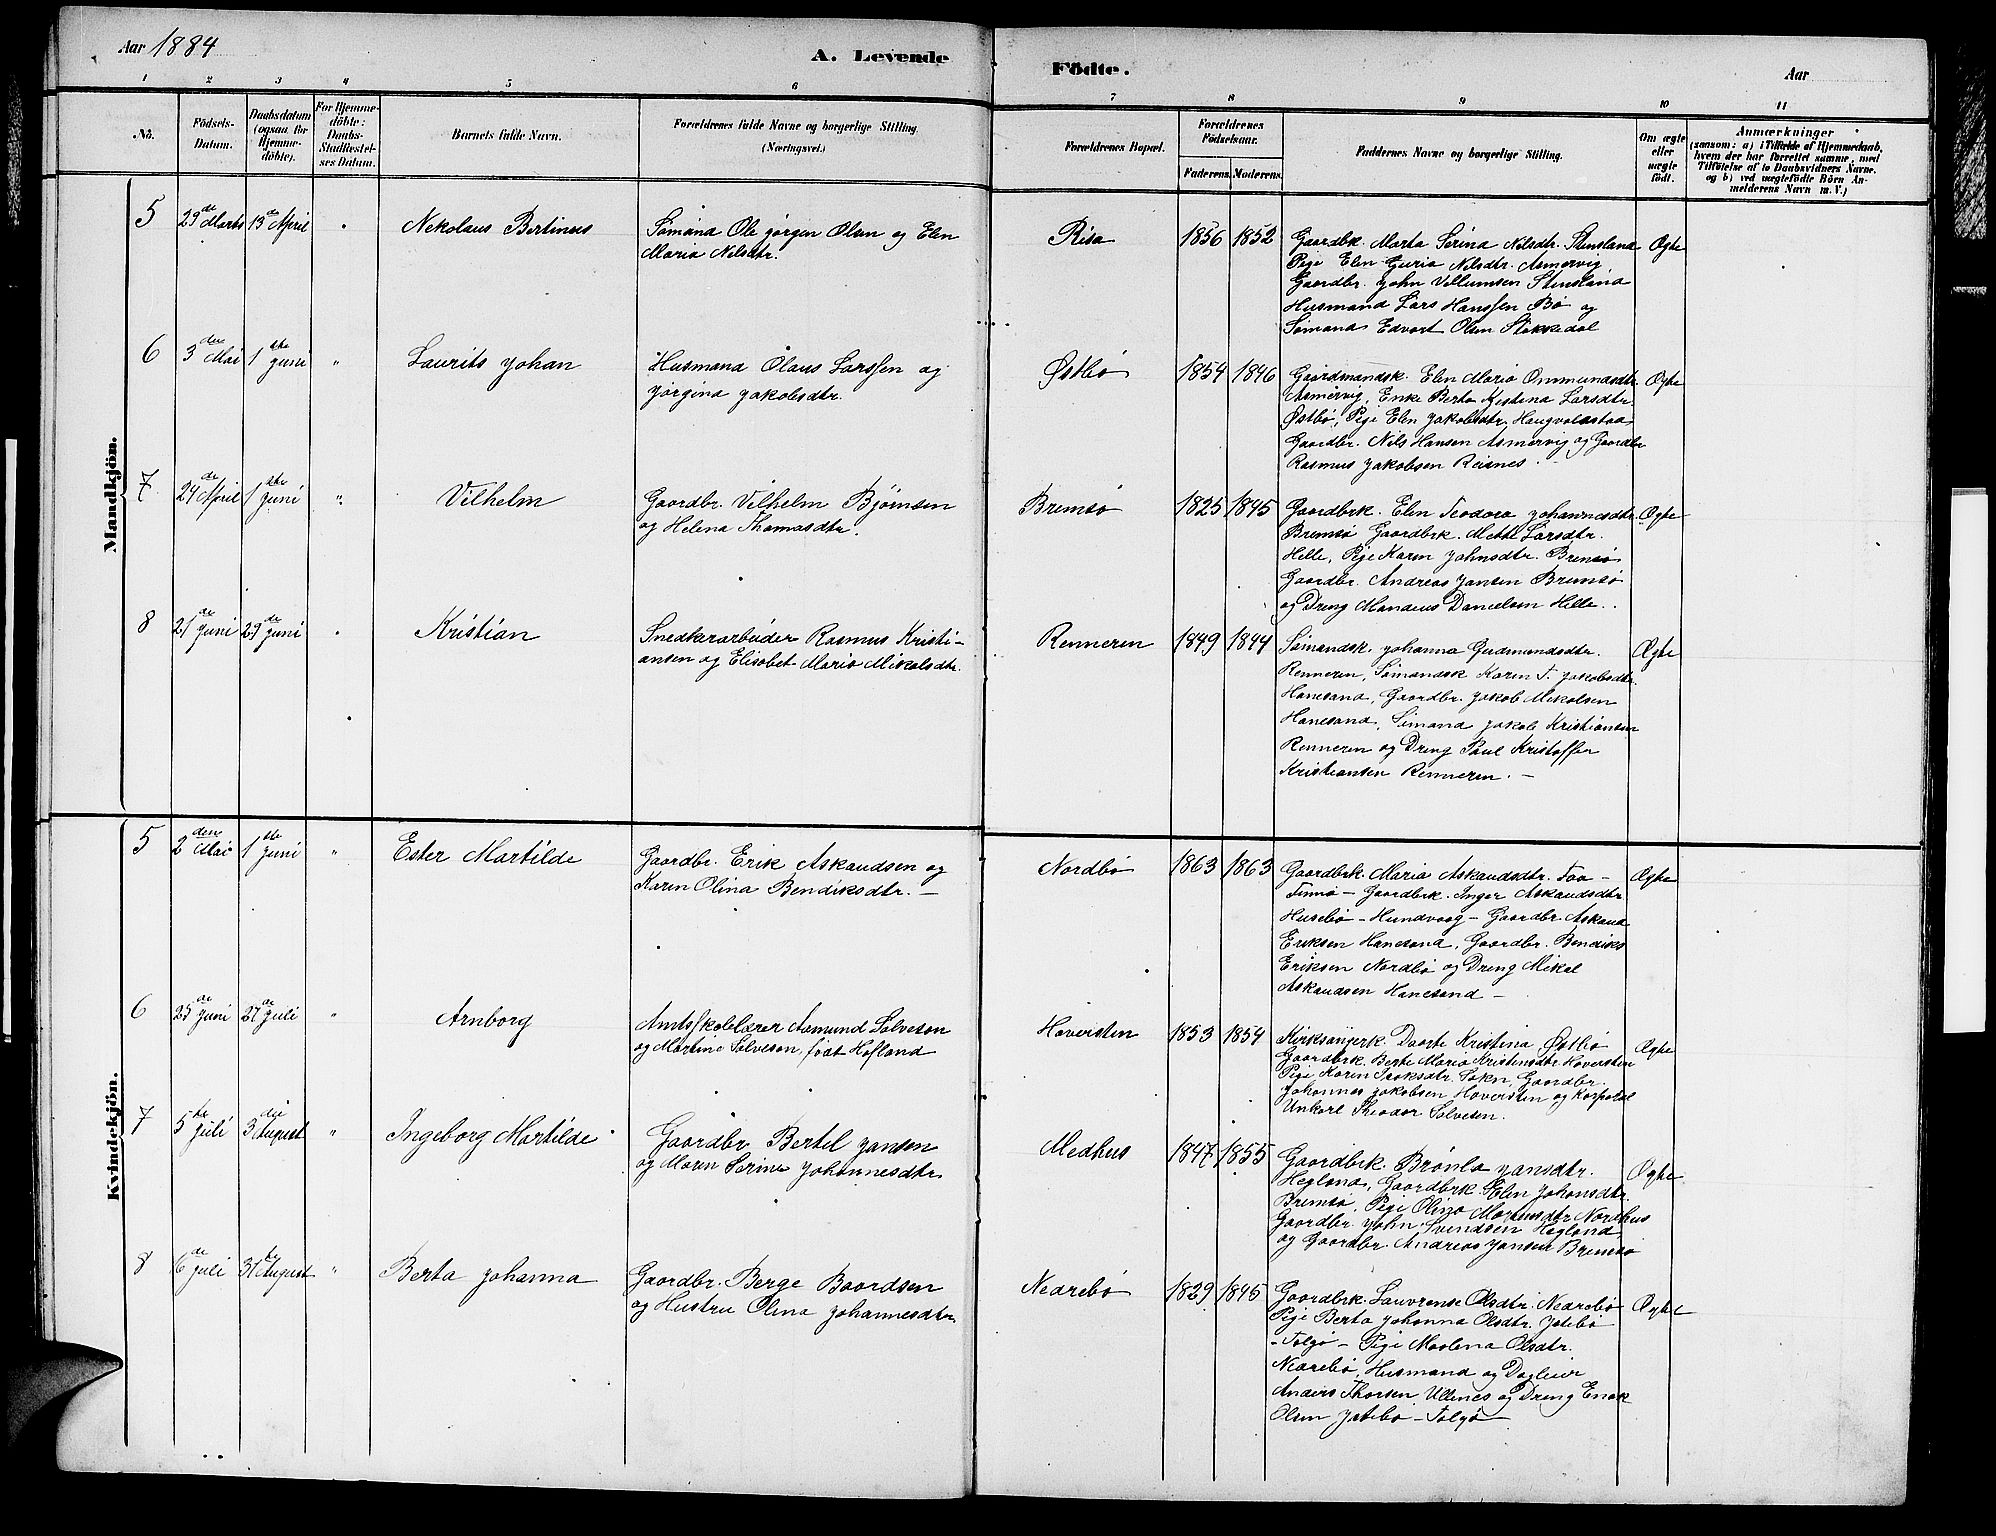 Aar 1884
A. Levende
Födte.
Aar
1 2 3 4 5 6 7 8 9 10 11
No.
Födsels-
Datum.
Daabsdatum
(ogsaa for
Hjemme-
döbte).
For Hjemme-
döbte:
Daabs-
Stadfæstel-
ses Datum.
Barnets fulde Navn.
Forældrenes fulde Navne og borgerlige Stilling.
(Næringsvei.)
Forældrenes Bopæl.
Forældrenes
Födselsaar.
Faderens. Moderens.
Faddernes Navne og borgerlige Stilling.
Om ægte
eller
uægte
födt.
Anmærkninger
(saasom: a) i Tilfælde af Hjemmedaab,
hvem der har forrettet samme, med
Tilföielse af to Daabsvidners Navne,
og b) ved uægtefödte Börn An-
melderens Navn m. V.)
Mandkjön.
5 29de Marts 13de April " Nekolaus Bertinus
Sømand Ole Jørgen Olsen og Elen
Maria Nilsdtr.
Risa 1856 1852
Gaardbk. Marta Serina Nilsdtr. Stensland
Pige Elen Guria Nilsdtr. Asmervig
Gaardbr. John Villumsen Stensland
Husmand Lars Hanssen Bø og
Sømand Edvart Olsen Stokkedal
Ægte
6 3den Mai 1ste Juni " Laurits Johan
Husmand Olaus Larssen og
Jørgina Jakobsdtr.
Østbø 1854 1846
Gaardmandsk. Elen Maria Ommundsdtr.
Asmervig, Enke Berta Kistina Larsdtr.
Østbø, Pige Elen Jakobsdtr. Haugvaldstad
Gaardbr. Nils Hansen Asmervig og Gaardbr
Rasmus Jakobsen Reisnes. -
Ægte
7 24de April 1ste Juni " Vilhelm
Gaardbr. Vilhelm Bjørnsen
og Helena Thomasdtr.
Bremsø 1825 1845
Gaardbrk. Elen Teodora Johannesdtr.
Bremsø Gaardbrk. Mette Larsdtr.
Helle, Pige Karen Johnsdtr. Bremsø
Gaardbr. Andreas Jansen Bremsø
og Dreng Mandius Danielsen Helle.
Ægte
8 21de Juni 29de Juni " Kristian
Snedkerarbeider Rasmus Kristi-
ansen og Elisabet Maria Mikalsdtr.
Renneren 1849 1844
Sømandsk. Johanna Gudmundsdtr.
Renneren, Sømandsk Karen T. Jakobsdtr.
Hanesand, Gaardbr. Jakob Mikalsen
Hanesand, Sømand Jakob Kristiansen
Renneren og Dreng Paul Kristoffer
Kristiansen Renneren. -
Ægte
Kvindekjön.
5 2den Mai 1ste Juni " Ester Martilde
Gaardbr. Erik Askaudsen og
Karen Olina Bendiksdtr. -
Nordbø 1863 1863
Gaardbrk. Maria Askaudsdtr. Foa -
Finnø - Gaardbrk. Inger Askaudsdtr
Husebø - Hundvaag - Gaardbr. Askaud
Eriksen Hanesand, Gaardbr. Bendiks
Eriksen Nordbø og Dreng Mikal
Askaudsen Hanesand -
Ægte
6 25de Juni 27de Juli " Arnborg
Amtsskolelærer Asmund Sølveson
og Martine Sølveson, født Hofland
Haversten 1853 1854
Kirksangerk. Daarte Kristina Østbø
Gaardbrk. Berte Maria Kristensdtr Haversten
Pige Karen Isaksdtr. Sokn, Gaardbr.
Johannes Jakobsen Haversten og Korporal
Unkarl Theodor Salvesen.
Ægte
7 5te Juli 3die August " Ingeborg Martilde
Gaardbr. Bertel Jansen
og Maren Serine Johannesdtr
Medhus 1847 1855
Gaardbrk. Brønla Jansdtr.
Hegland, Gaardbrk. Elen Johansdtr.
Bremsø, Pige Olina Mortensdtr Nordhus
Gaardbr. John Svendsen Hegland
og Gaardbr. Andreas Jansen Bremsø
Ægte
8 6te Juli 31te August " Berta Johanna
Gaardbr. Berge Baardsen
og Hustru Olina Johannesdtr
Nedrebø 1829 1845
Gaardbrk. Lauvrense Olsdtr. Nedrebø
Pige Berta Johanna Olsdtr. Jotebø
- Talgø - Pige Madlena Olsdtr.
Nedrebø, Husmand og Dagleier
Anders Thorsen Ullenes og Dreng Enok
Olsen Jotebø - Talgø
Ægte